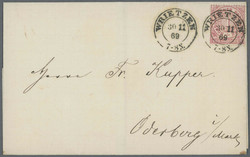 WRIETZEN
30 11
69
7-8N.
WRIETZEN
30 11
69
7-8N.
Herrn Fr. Kupper
Oderberg i/Mark